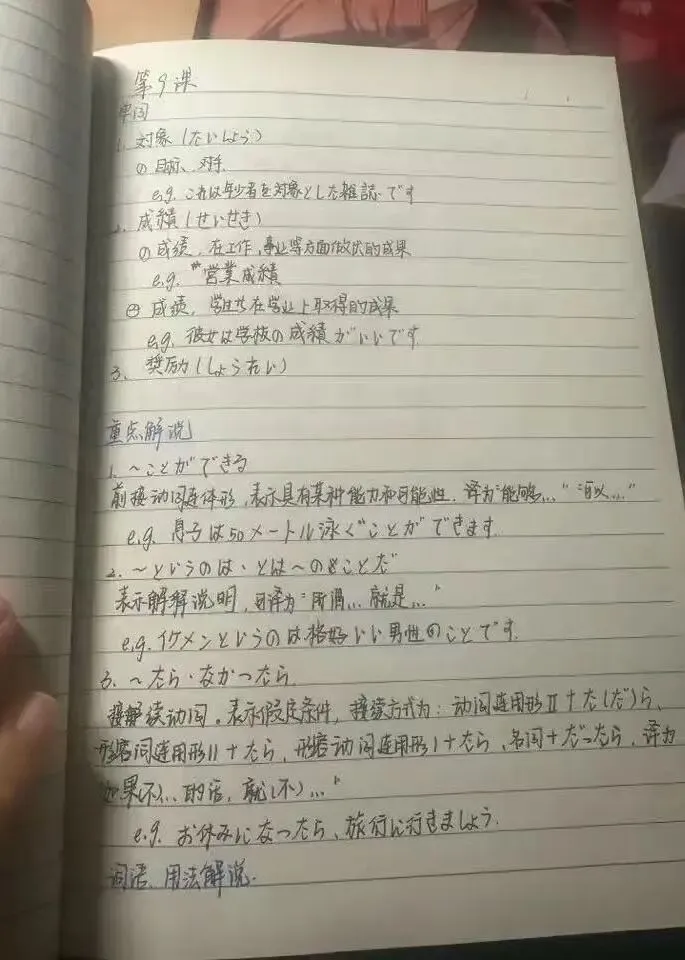 第9课
单词
1. 対象(たいしょう)
① 目标、对手
e.g. これは年少者を対象とした雑誌です
2. 成績(せいせき)
① 成绩，在工作，事业等方面做出的成果
e.g. 営業成績
② 成绩，学生在学业上取得的成果
e.g. 彼女は学校の成績がいいです.
3. 奨励(しょうれい)
重点解说
1. ～ことができる
前接动词连体形，表示具有某种能力和可能性. 译为"能够..." "可以..."
e.g. 息子は50メートル泳ぐことができます.
2. ～というのは・とは～のことだ
表示解释说明，可译为"所谓... 就是..."
e.g. イケメンというのは格好いい男性のことです.
3. ～たら・なかったら
接续动词。表示假定条件，接续方式为：动词连用形Ⅱ+た(だ)ら、
形容词连用形Ⅱ+たら，形容动词连用形Ⅰ+たら、名词+だったら，译为
"如果(不)... 的话，就(不)..."
e.g. お休みになったら、旅行に行きましょう.
词语、用法解说.